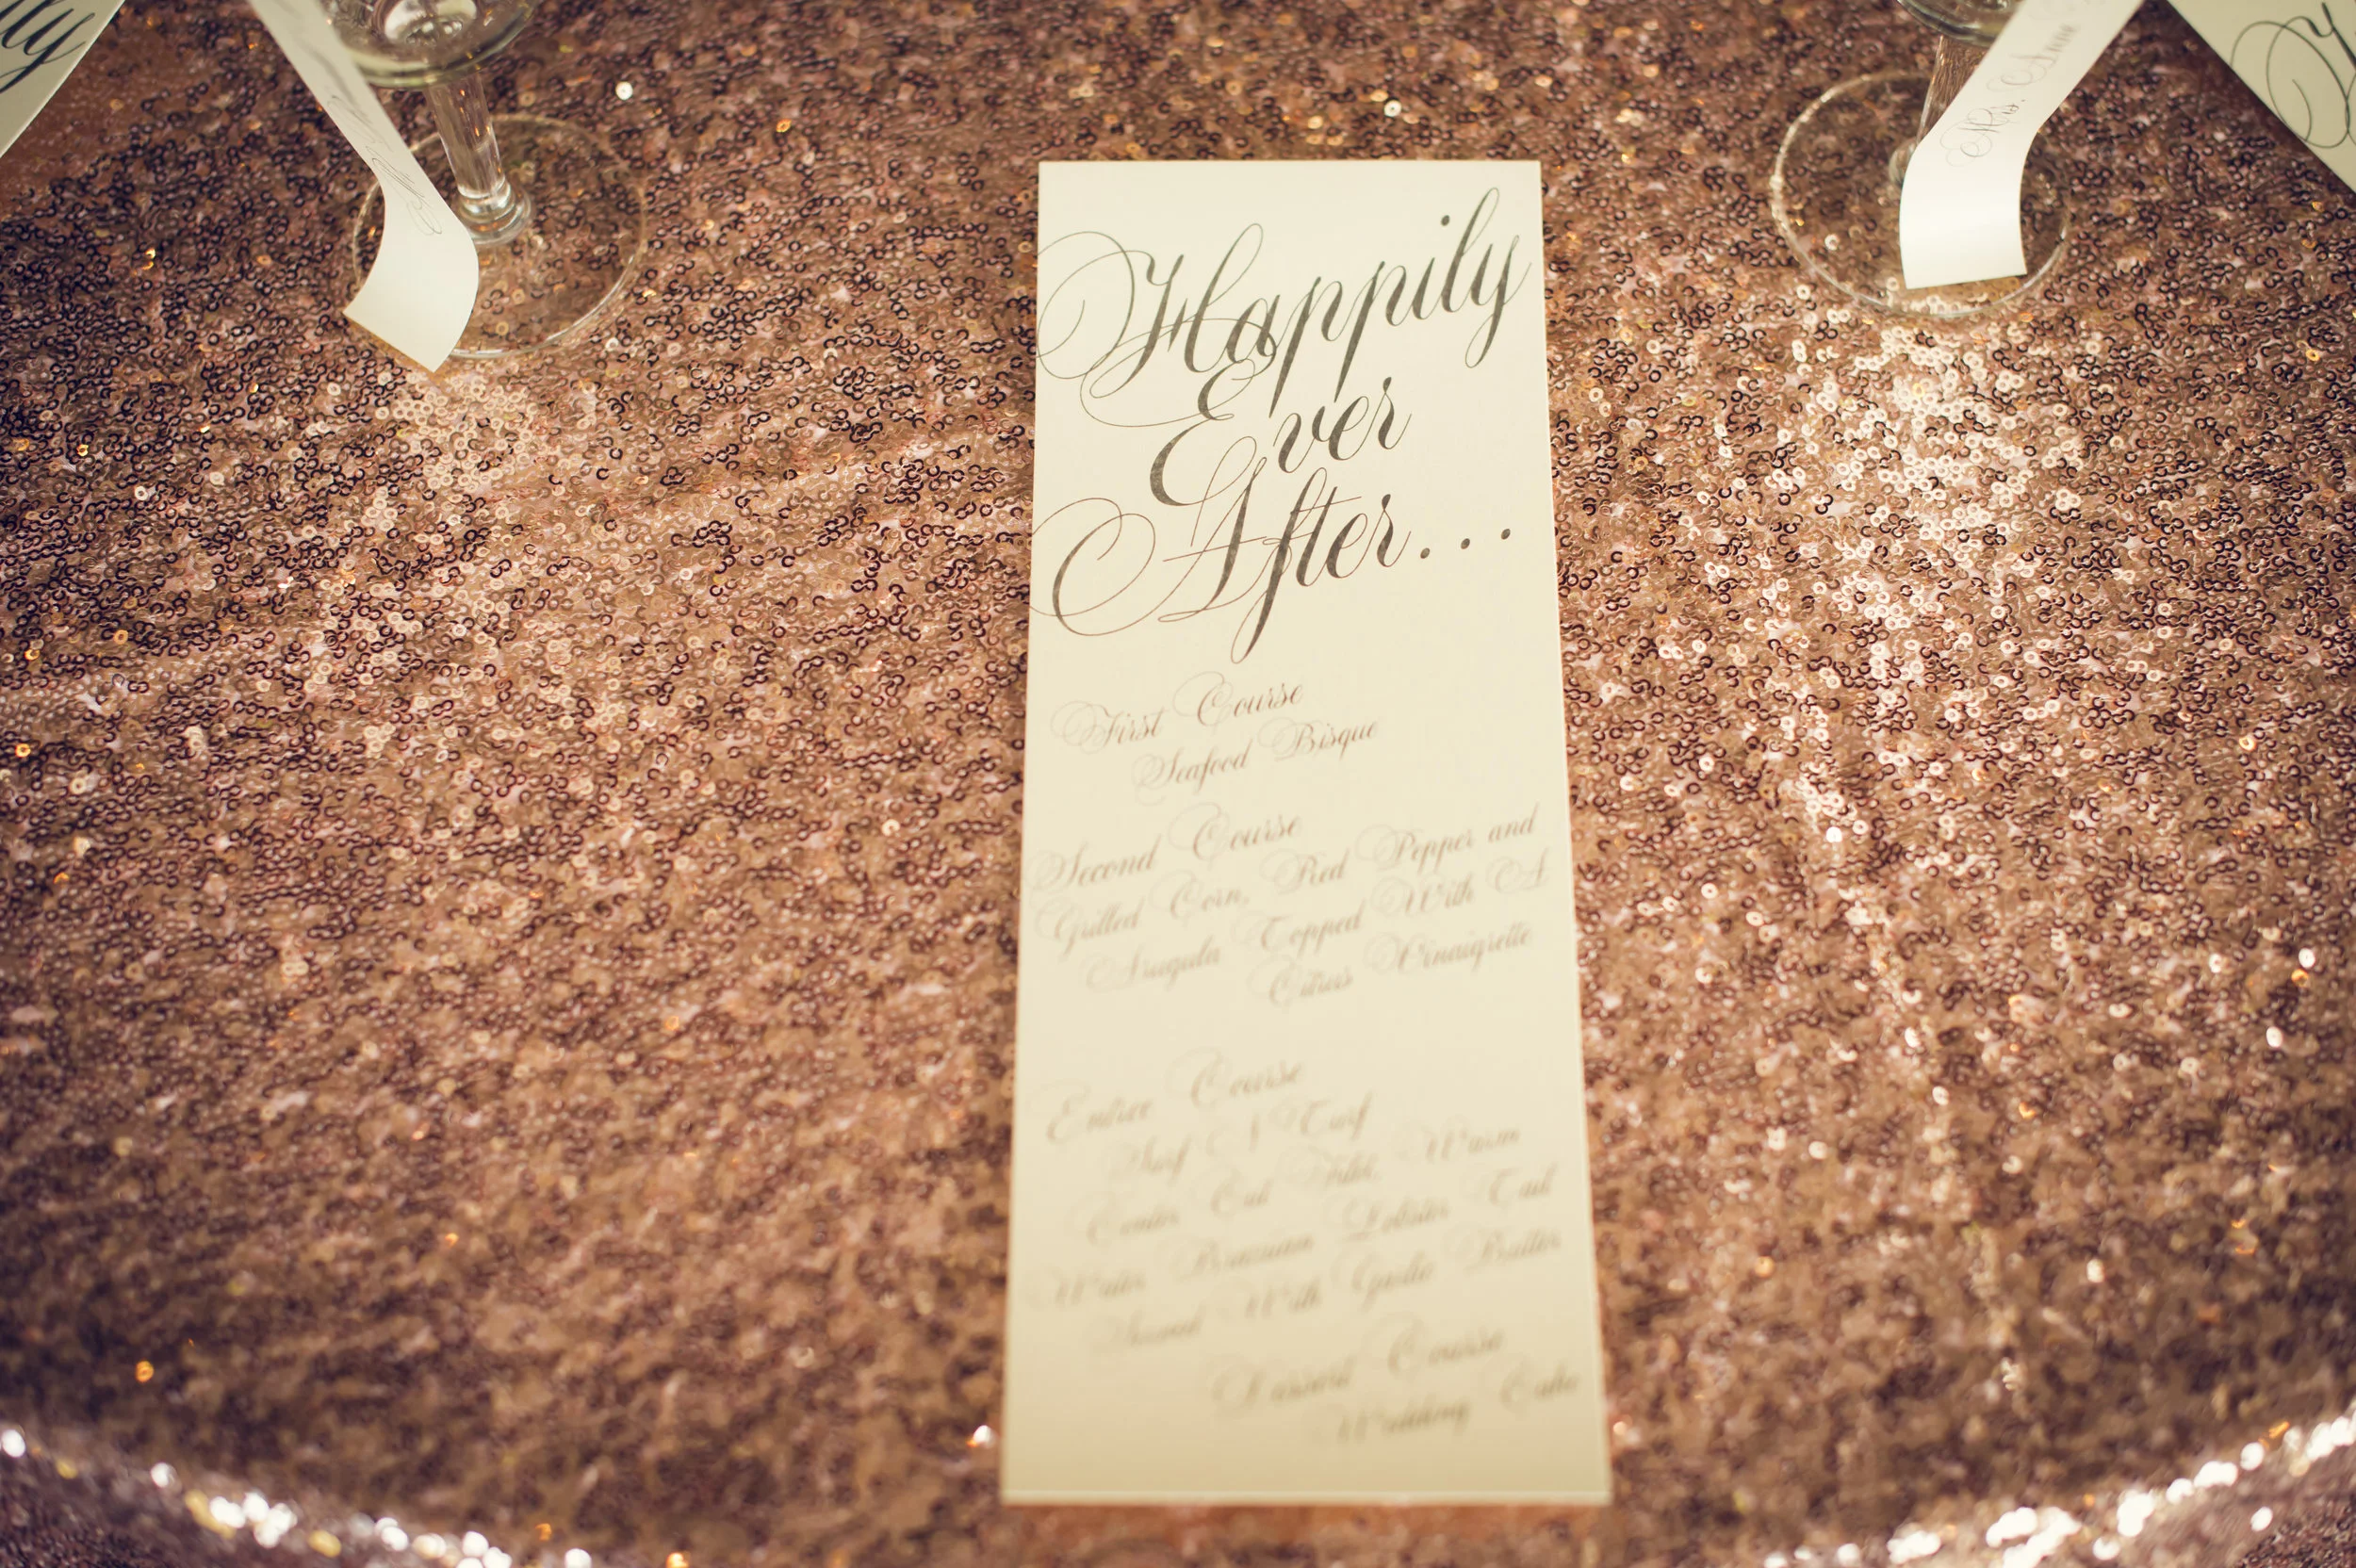 Happily
Ever
After...
First Course
Seafood Bisque
Second Course
Grilled Corn, Red Pepper and
Arugula Topped With A
Citrus Vinaigrette
Entree Course
Surf N Turf
Center Cut Filet, Warm
Water Lobster Tail
With Garlic Butter
Dessert Course
Wedding Cake
Mrs.